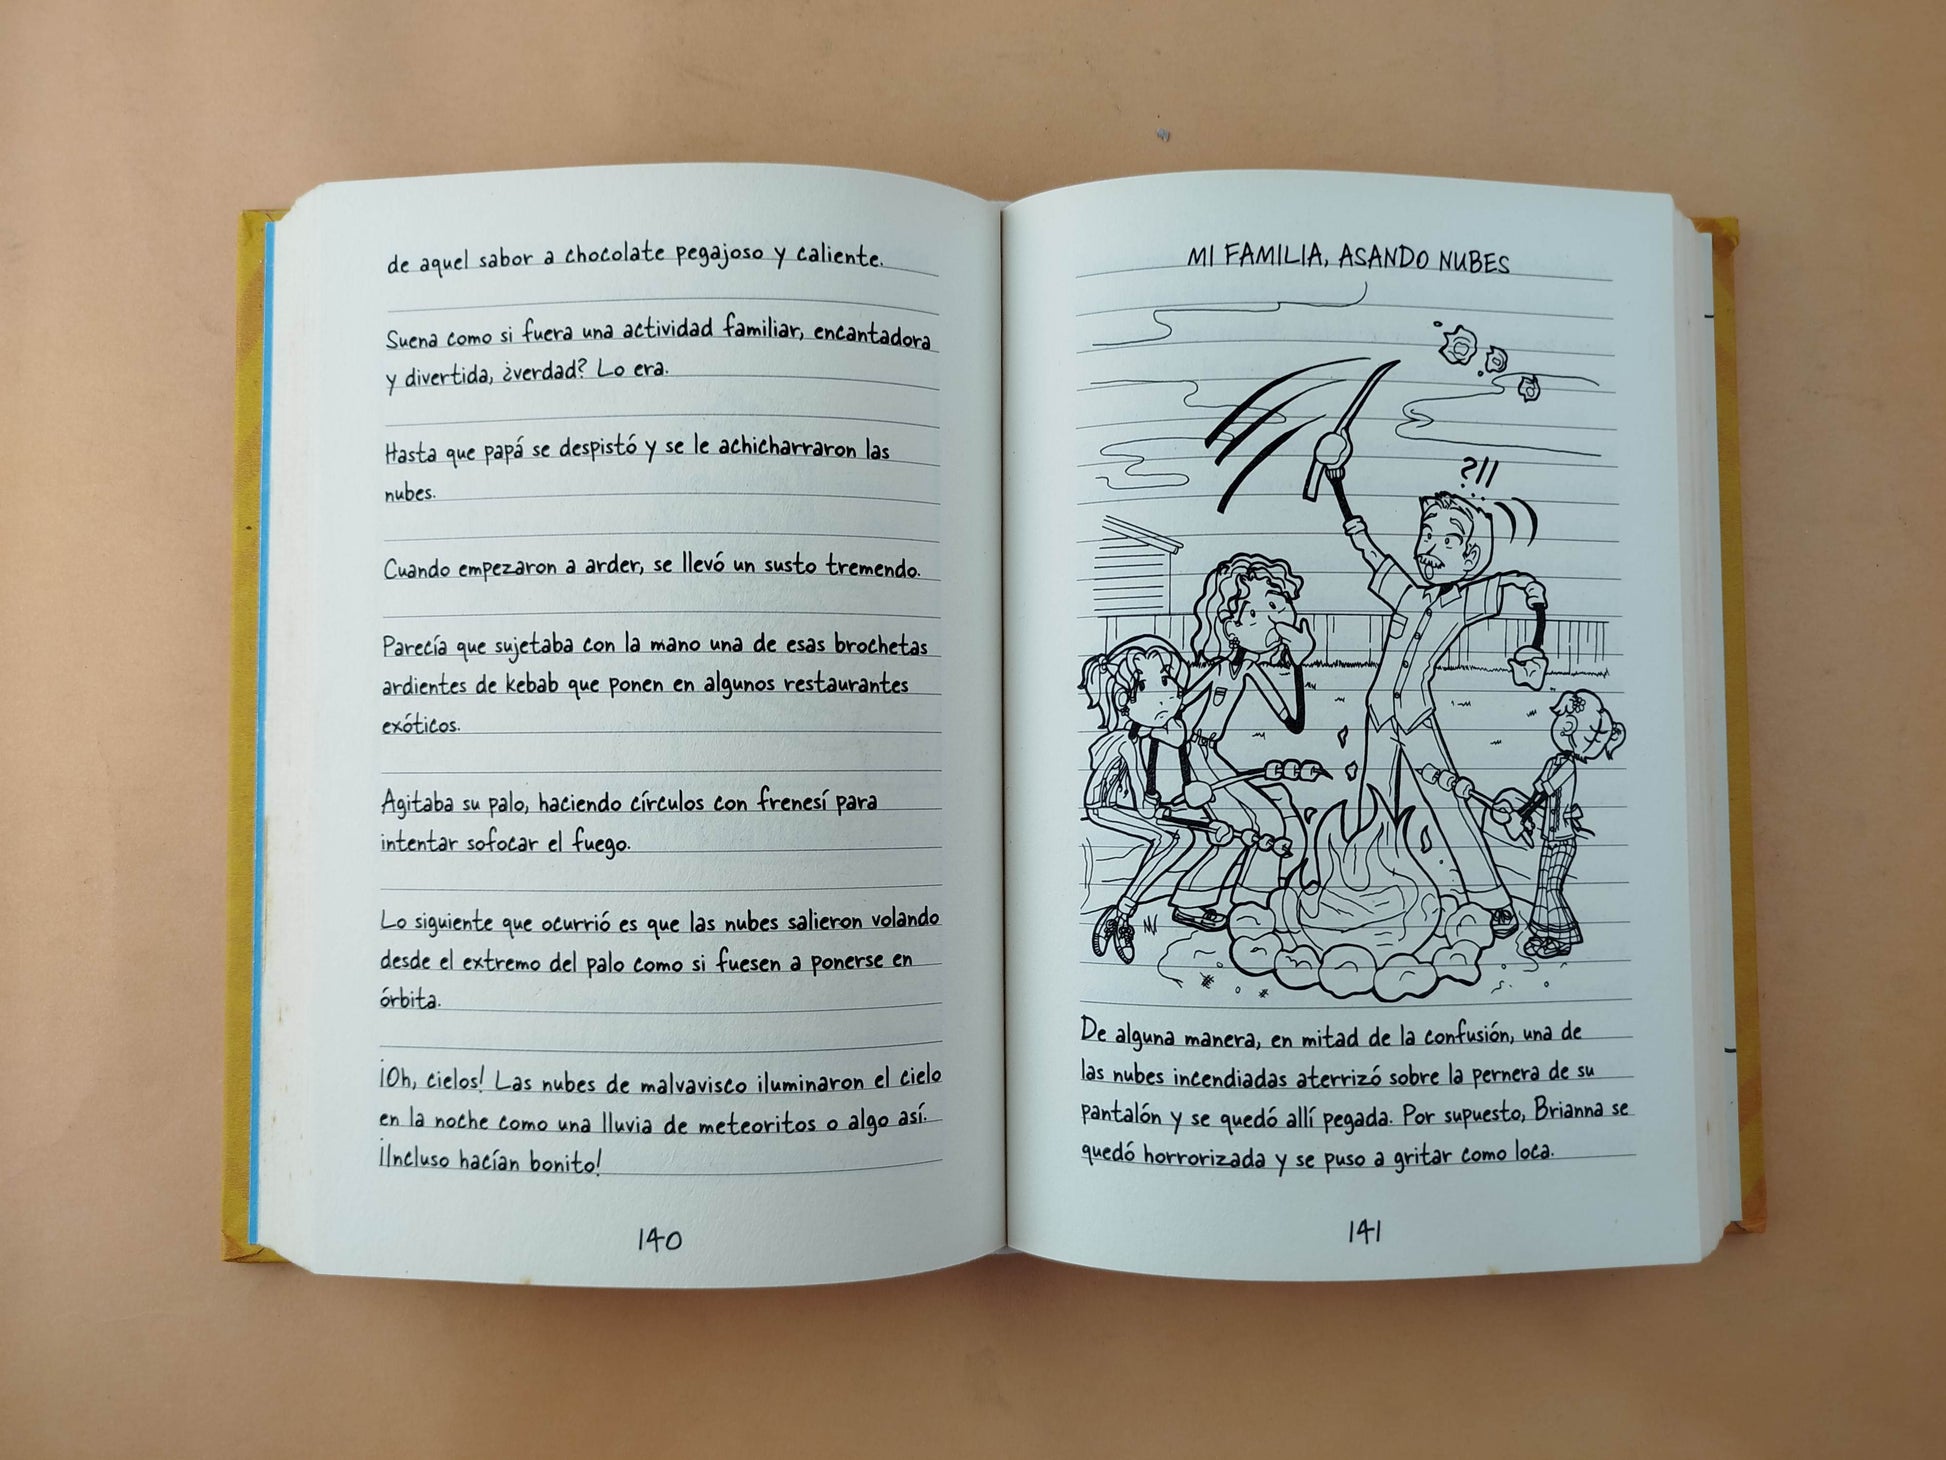 de aquel sabor a chocolate pegajoso y caliente.
Suena como si fuera una actividad familiar, encantadora
y divertida, ¿verdad? Lo era.
Hasta que papá se despistó y se le achicharraron las
nubes.
Cuando empezaron a arder, se llevó un susto tremendo.
Parecía que sujetaba con la mano una de esas brochetas
ardientes de kebab que ponen en algunos restaurantes
exóticos.
Agitaba su palo, haciendo círculos con frenesí para
intentar sofocar el fuego.
Lo siguiente que ocurrió es que las nubes salieron volando
desde el extremo del palo como si fuesen a ponerse en
órbita.
¡Oh, cielos! Las nubes de malvavisco iluminaron el cielo
en la noche como una lluvia de meteoritos o algo así.
¡Incluso hacían bonito!
140
MI FAMILIA, ASANDO NUBES
?!!
De alguna manera, en mitad de la confusión, una de
las nubes incendiadas aterrizó sobre la pernera de su
pantalón y se quedó allí pegada. Por supuesto, Brianna se
quedó horrorizada y se puso a gritar como loca.
141